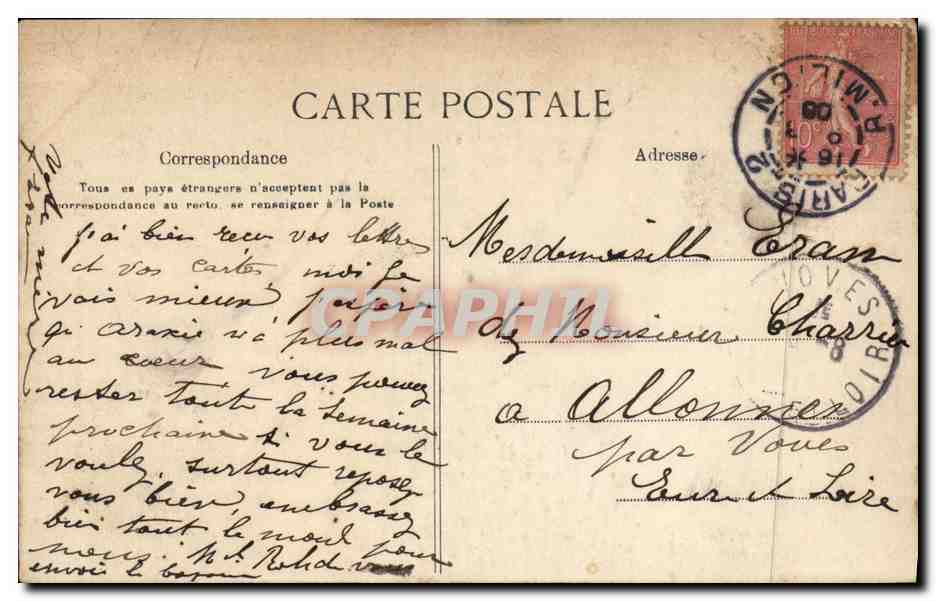 CARTE POSTALE
Correspondance
Tous es pays étrangers n'acceptent pas la
correspondance au recto, se renseigner à la Poste
j'ai bien recu vos lettres
et vos cartes moi je
vais mieux j'espère
q. n'a plus mal
au coeur vous pouvez
rester toute la semaine
prochaine si vous le
voulez, surtout reposez
vous bien, embrassez
bien tout le monde pour
nous.
envoie le
Votre
Adresse
Mesdemoiselle Eram
chez Monsieur Charron
a Allonnes
par Voves
Eure et Loire
PARIS 2 R. MILTON
16
08
VOVES
LOIR
10c
CPAPHIL